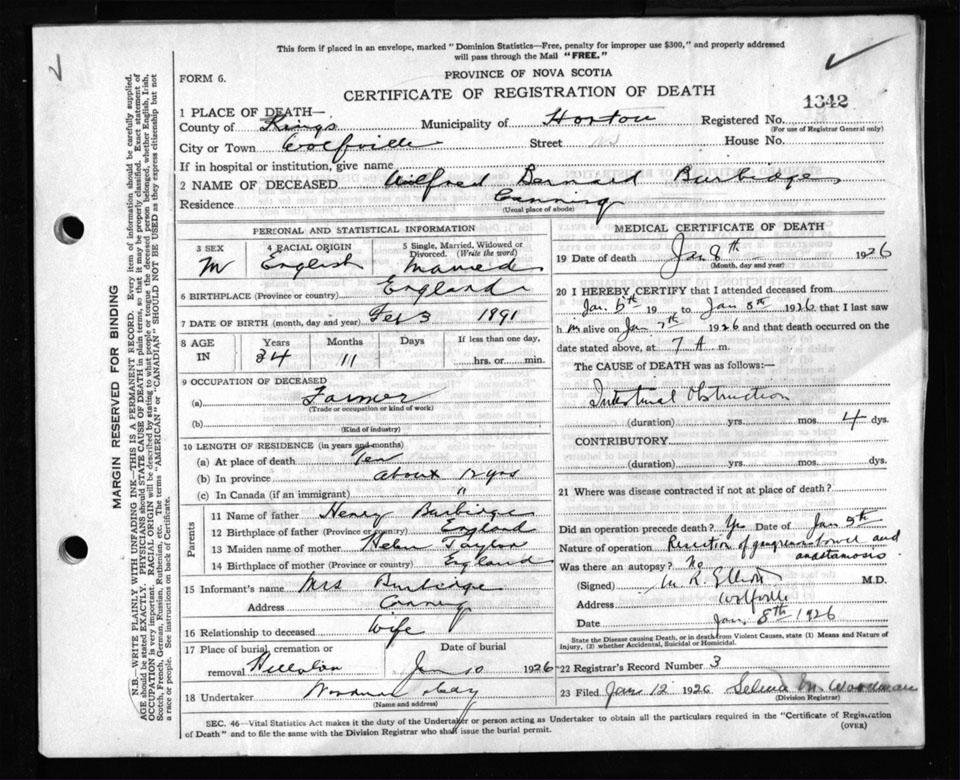 This form if placed in an envelope, marked "Dominion Statistics—Free, penalty for improper use $300," and properly addressed
will pass through the Mail "FREE."
FORM 6.
PROVINCE OF NOVA SCOTIA
CERTIFICATE OF REGISTRATION OF DEATH
1342
1 PLACE OF DEATH—
County of Kings Municipality of Horton Registered No.
(For use of Registrar General only)
City or Town Wolfville Street House No.
If in hospital or institution, give name
2 NAME OF DECEASED Wilfred Bernard Burbidge
Residence Canning
(Usual place of abode)
MARGIN RESERVED FOR BINDING
N.B.—WRITE PLAINLY WITH UNFADING INK—THIS IS A PERMANENT RECORD. Every item of information should be carefully supplied.
AGE should be stated EXACTLY. PHYSICIANS should STATE CAUSE OF DEATH in plain terms, so that it may be properly classified. Exact statement of
OCCUPATION is very important. RACIAL ORIGIN will be described by stating to what people or tongue the deceased person belonged, whether English, Irish,
Scotch, French, German, Russian, Ruthenian, etc. The terms "AMERICAN" or "CANADIAN" SHOULD NOT BE USED as they express citizenship but not
a race or people. See instructions on back of Certificate.
PERSONAL AND STATISTICAL INFORMATION
3 SEX 4 RACIAL ORIGIN 5 Single, Married, Widowed or
Divorced. (Write the word)
M English Married
6 BIRTHPLACE (Province or country) England
7 DATE OF BIRTH (month, day and year) Feb 3 1891
8 AGE Years Months Days If less than one day,
IN 34 11 hrs. or min.
9 OCCUPATION OF DECEASED
(a) Farmer
(Trade or occupation or kind of work)
(b)
(Kind of industry)
10 LENGTH OF RESIDENCE (in years and months)
(a) At place of death Ten
(b) In province about 12 yrs
(c) In Canada (if an immigrant) "
Parents
11 Name of father Henry Burbidge
12 Birthplace of father (Province or country) England
13 Maiden name of mother Helen Taylor
14 Birthplace of mother (Province or country) England
15 Informant's name Mrs Burbidge
Address Canning
16 Relationship to deceased Wife
17 Place of burial, cremation or Date of burial
removal Jan 10 1926
18 Undertaker
(Name and address)
MEDICAL CERTIFICATE OF DEATH
19 Date of death Jan 8th 1926
(Month, day and year)
20 I HEREBY CERTIFY that I attended deceased from
Jan. 5th 19 to Jan 8th 1926, that I last saw
h m alive on Jan 7th 1926 and that death occurred on
date stated above, at 7 A m.
The CAUSE of DEATH was as follows:—
Intestinal Obstruction
(duration) yrs. mos. 4 dys.
CONTRIBUTORY
(duration) yrs. mos. dys.
21 Where was disease contracted if not at place of death?
Did an operation precede death? Yes Date of Jan 5th
Nature of operation Resection of gangrenous bowel and
anastamosis
Was there an autopsy? No
(Signed) M. R. Elliott M.D.
Address Wolfville
Date Jan. 8th 1926
State the Disease causing Death, or in death from Violent Causes, state (1) Means and Nature of
Injury, (2) whether Accidental, Suicidal or Homicidal.
22 Registrar's Record Number 3
23 Filed Jan 12 1926 Selina M. Woodman
(Division Registrar)
SEC. 46—Vital Statistics Act makes it the duty of the Undertaker or person acting as Undertaker to obtain all the particulars required in the "Certificate of Registration
of Death" and to file the same with the Division Registrar who shall issue the burial permit.
(OVER)